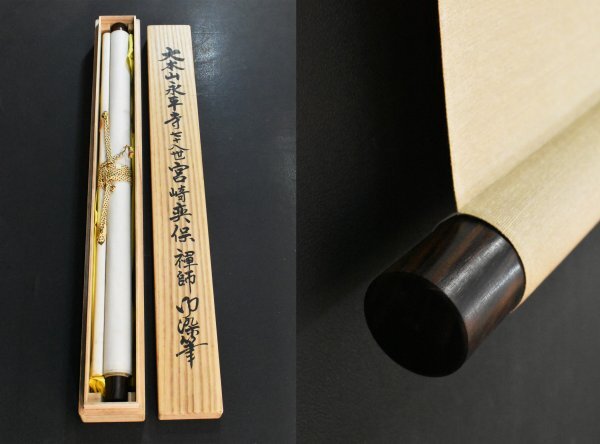 大本山永平寺七十八世宮崎奕保禅師御染筆